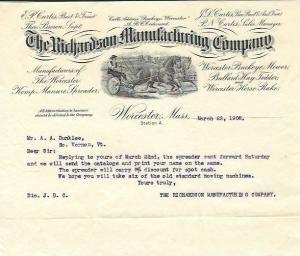 E. P. Curtis, Prest & Treast
Theo. Brown, Supt.
Cable Address "Buckeye, Worcester"
A.B.C. Code used.
J. D. Curtis, Vice Prest & Asst Treas
P. A. Curtis, Sales Manager.
The Richardson Manufacturing Company
Manufacturers of
The Worcester
Kemp Manure Spreader
Worcester Buckeye Mower
Bullard Hay Tedder
Worcester Horse Rake
All communications in business
should be addressed to the Company.
Worcester, Mass.
Station A.
March 23, 1905.
Mr. A. A. Dunklee,
So. Vernon, Vt.
Dear Sir:
Replying to yours of March 22nd, the spreader went forward Saturday
and we will send the catalogs and print your name on the same.
The spreader will carry 5% discount for spot cash.
We hope you will take six of the old standard mowing machines.
Yours truly,
Dic. J. D. C.
THE RICHARDSON MANUFACTURING COMPANY.